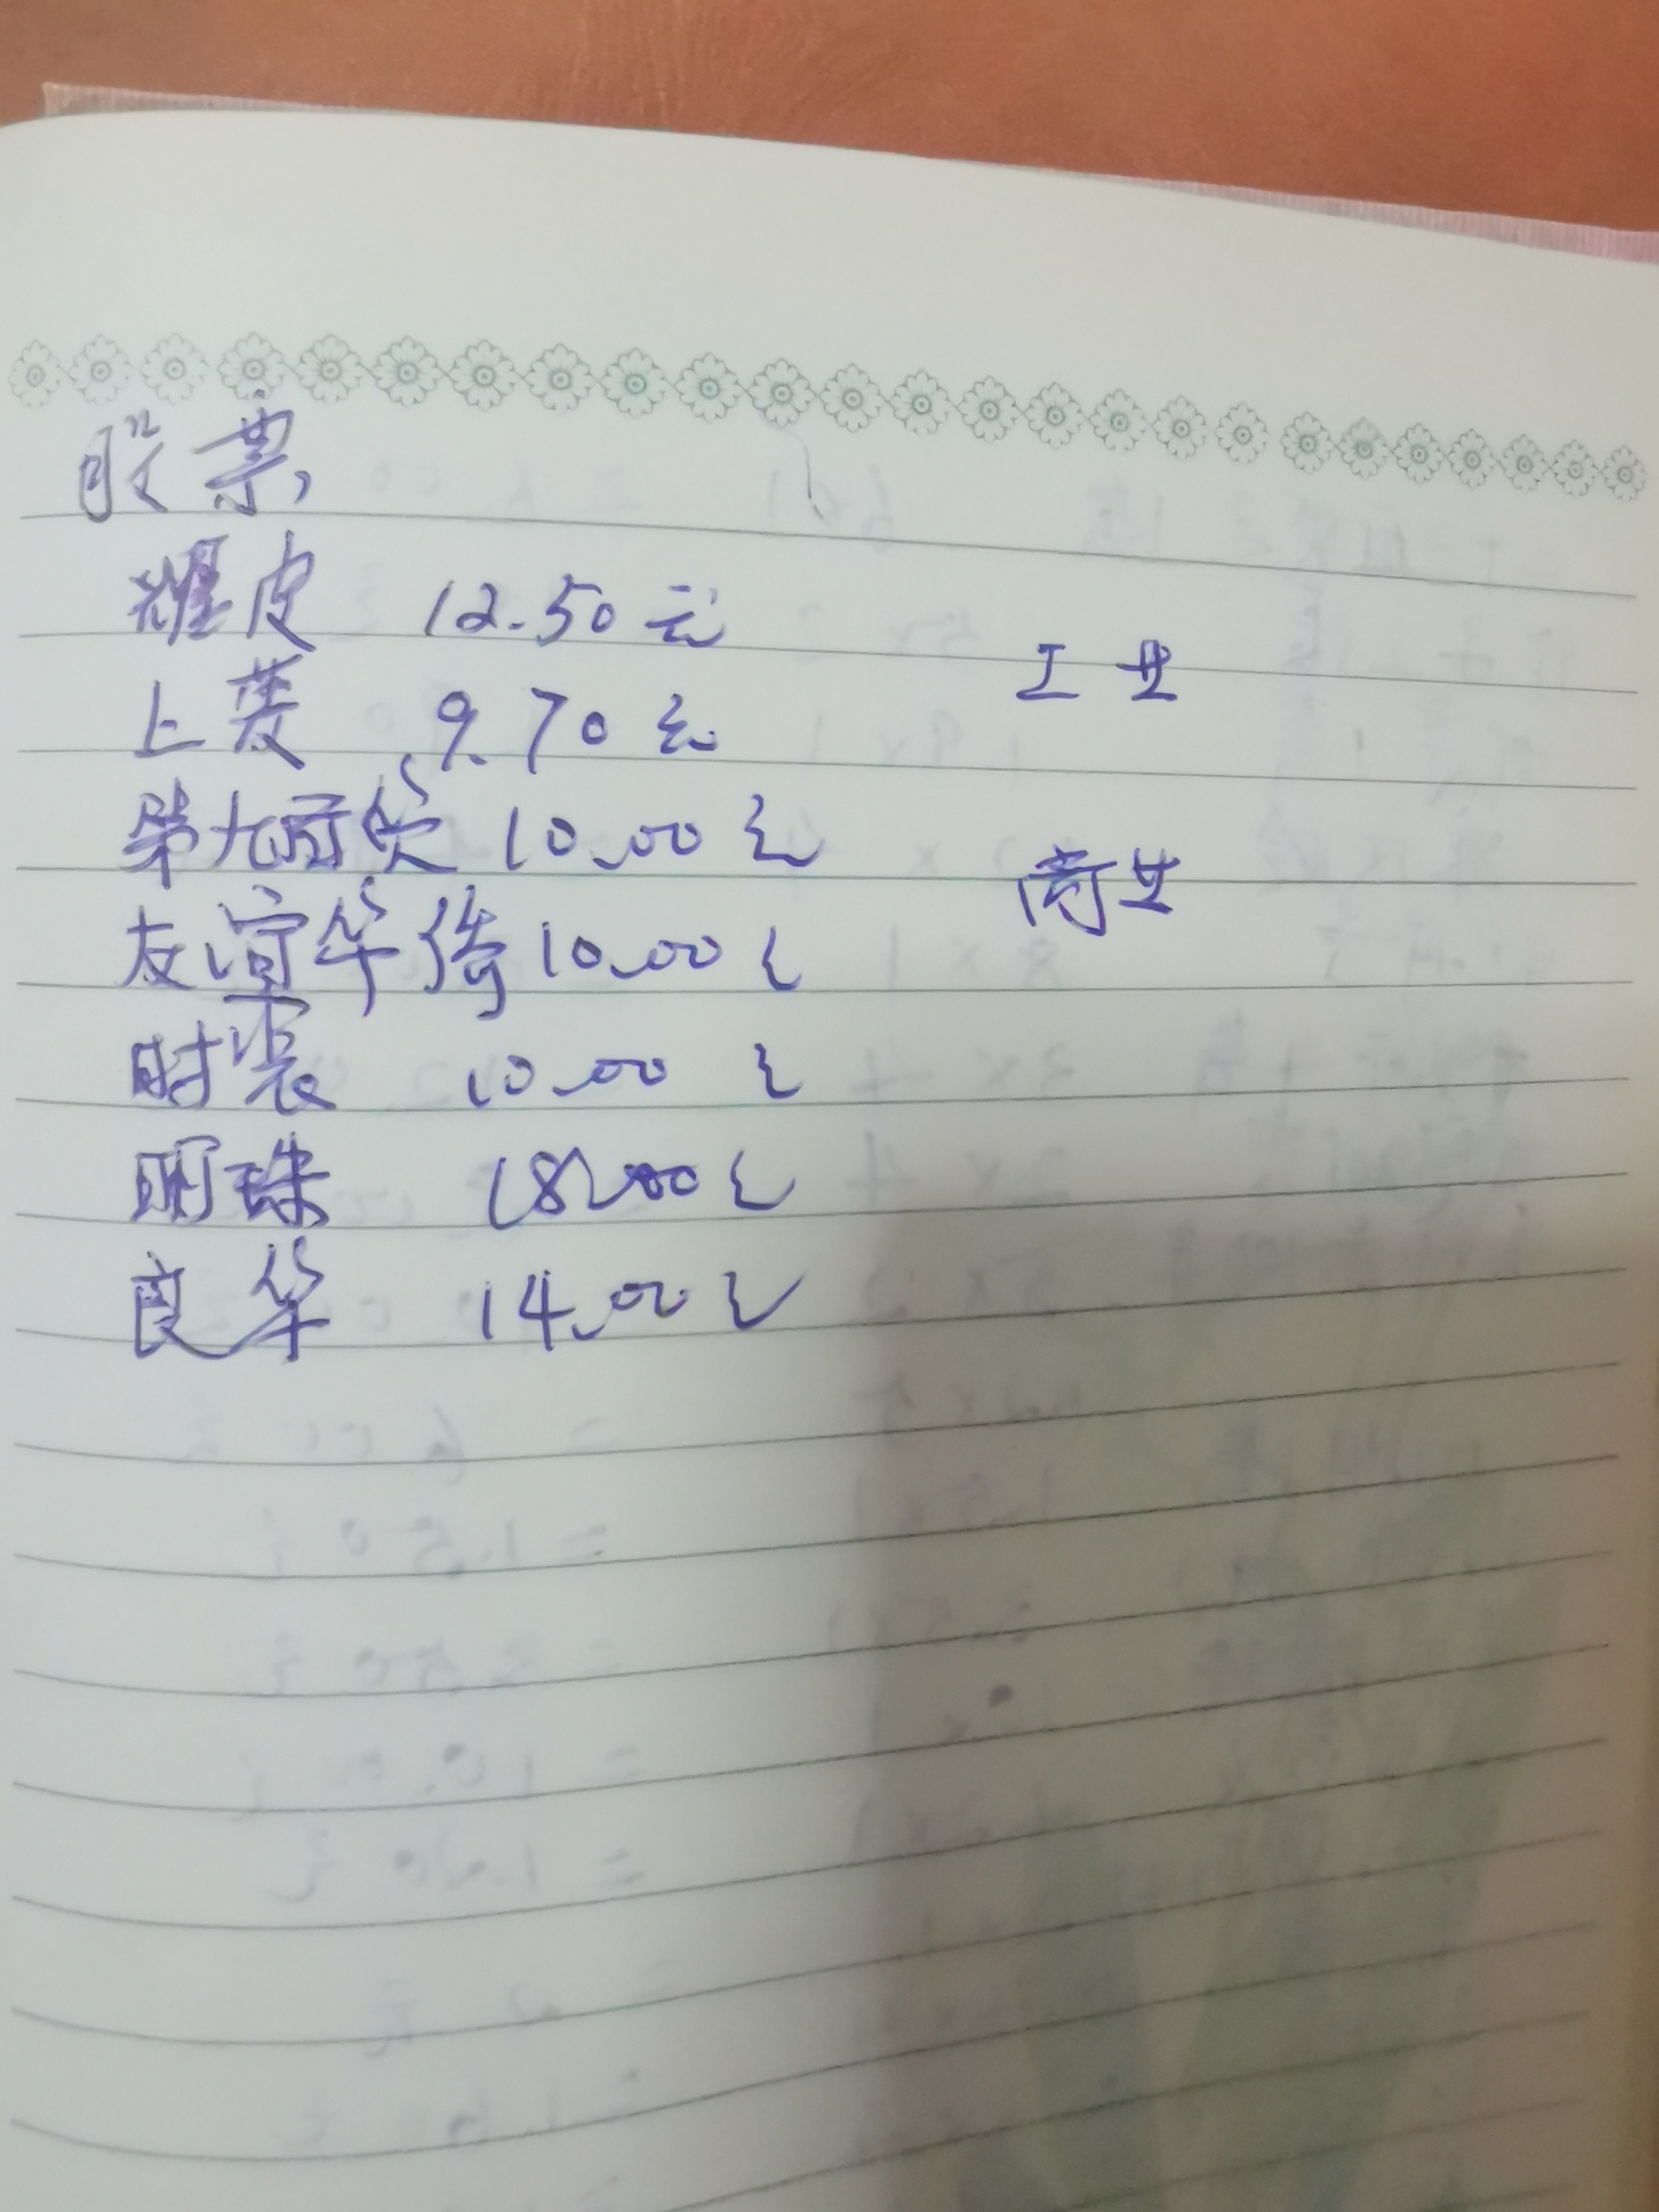 股票,
耀皮 12.50元
工业
上菱 9.70元
第九百货 10.00元
商业
友谊华侨 10.00元
时装 10.00元
明珠 18.00元
良华 14.00元